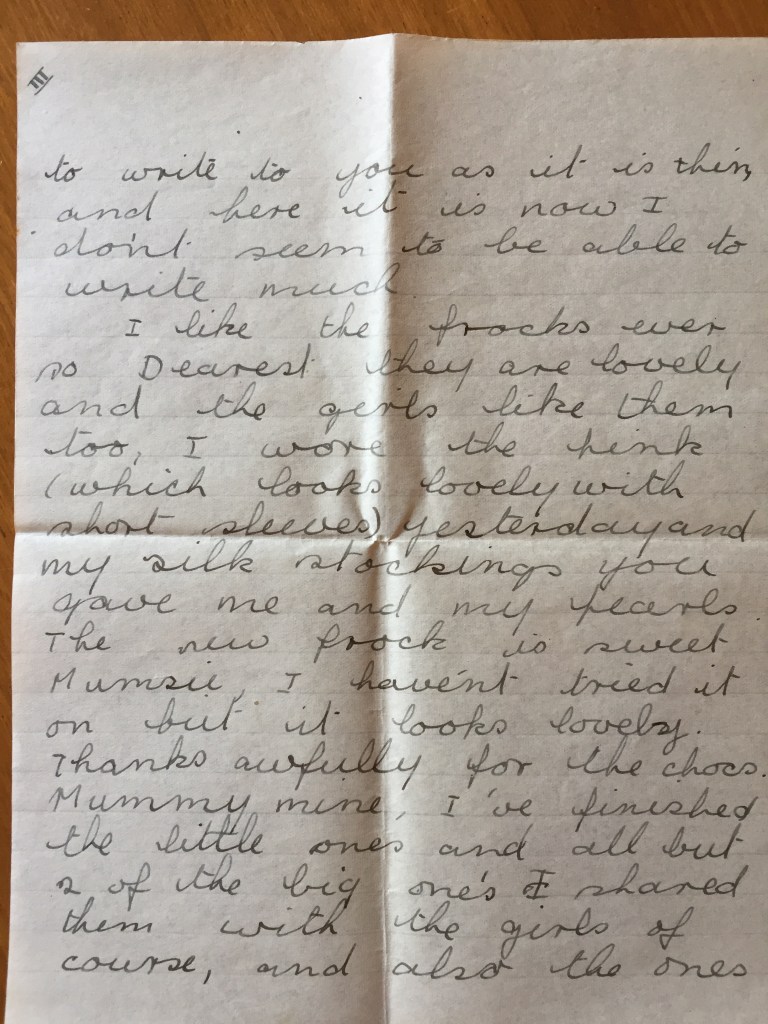 III
to write to you as it is thin,
and here it is now I
don't seem to be able to
write much
I like the frocks ever
so Dearest they are lovely
and the girls like them
too, I wore the pink
(which looks lovely with
short sleeves) yesterday and
my silk stockings you
gave me and my pearls.
The new frock is sweet
Mumsie, I haven't tried it
on but it looks lovely.
Thanks awfully for the chocs.
Mummy mine, I've finished
the little ones and all but
2 of the big one's I shared
them with the girls of
course, and also the ones